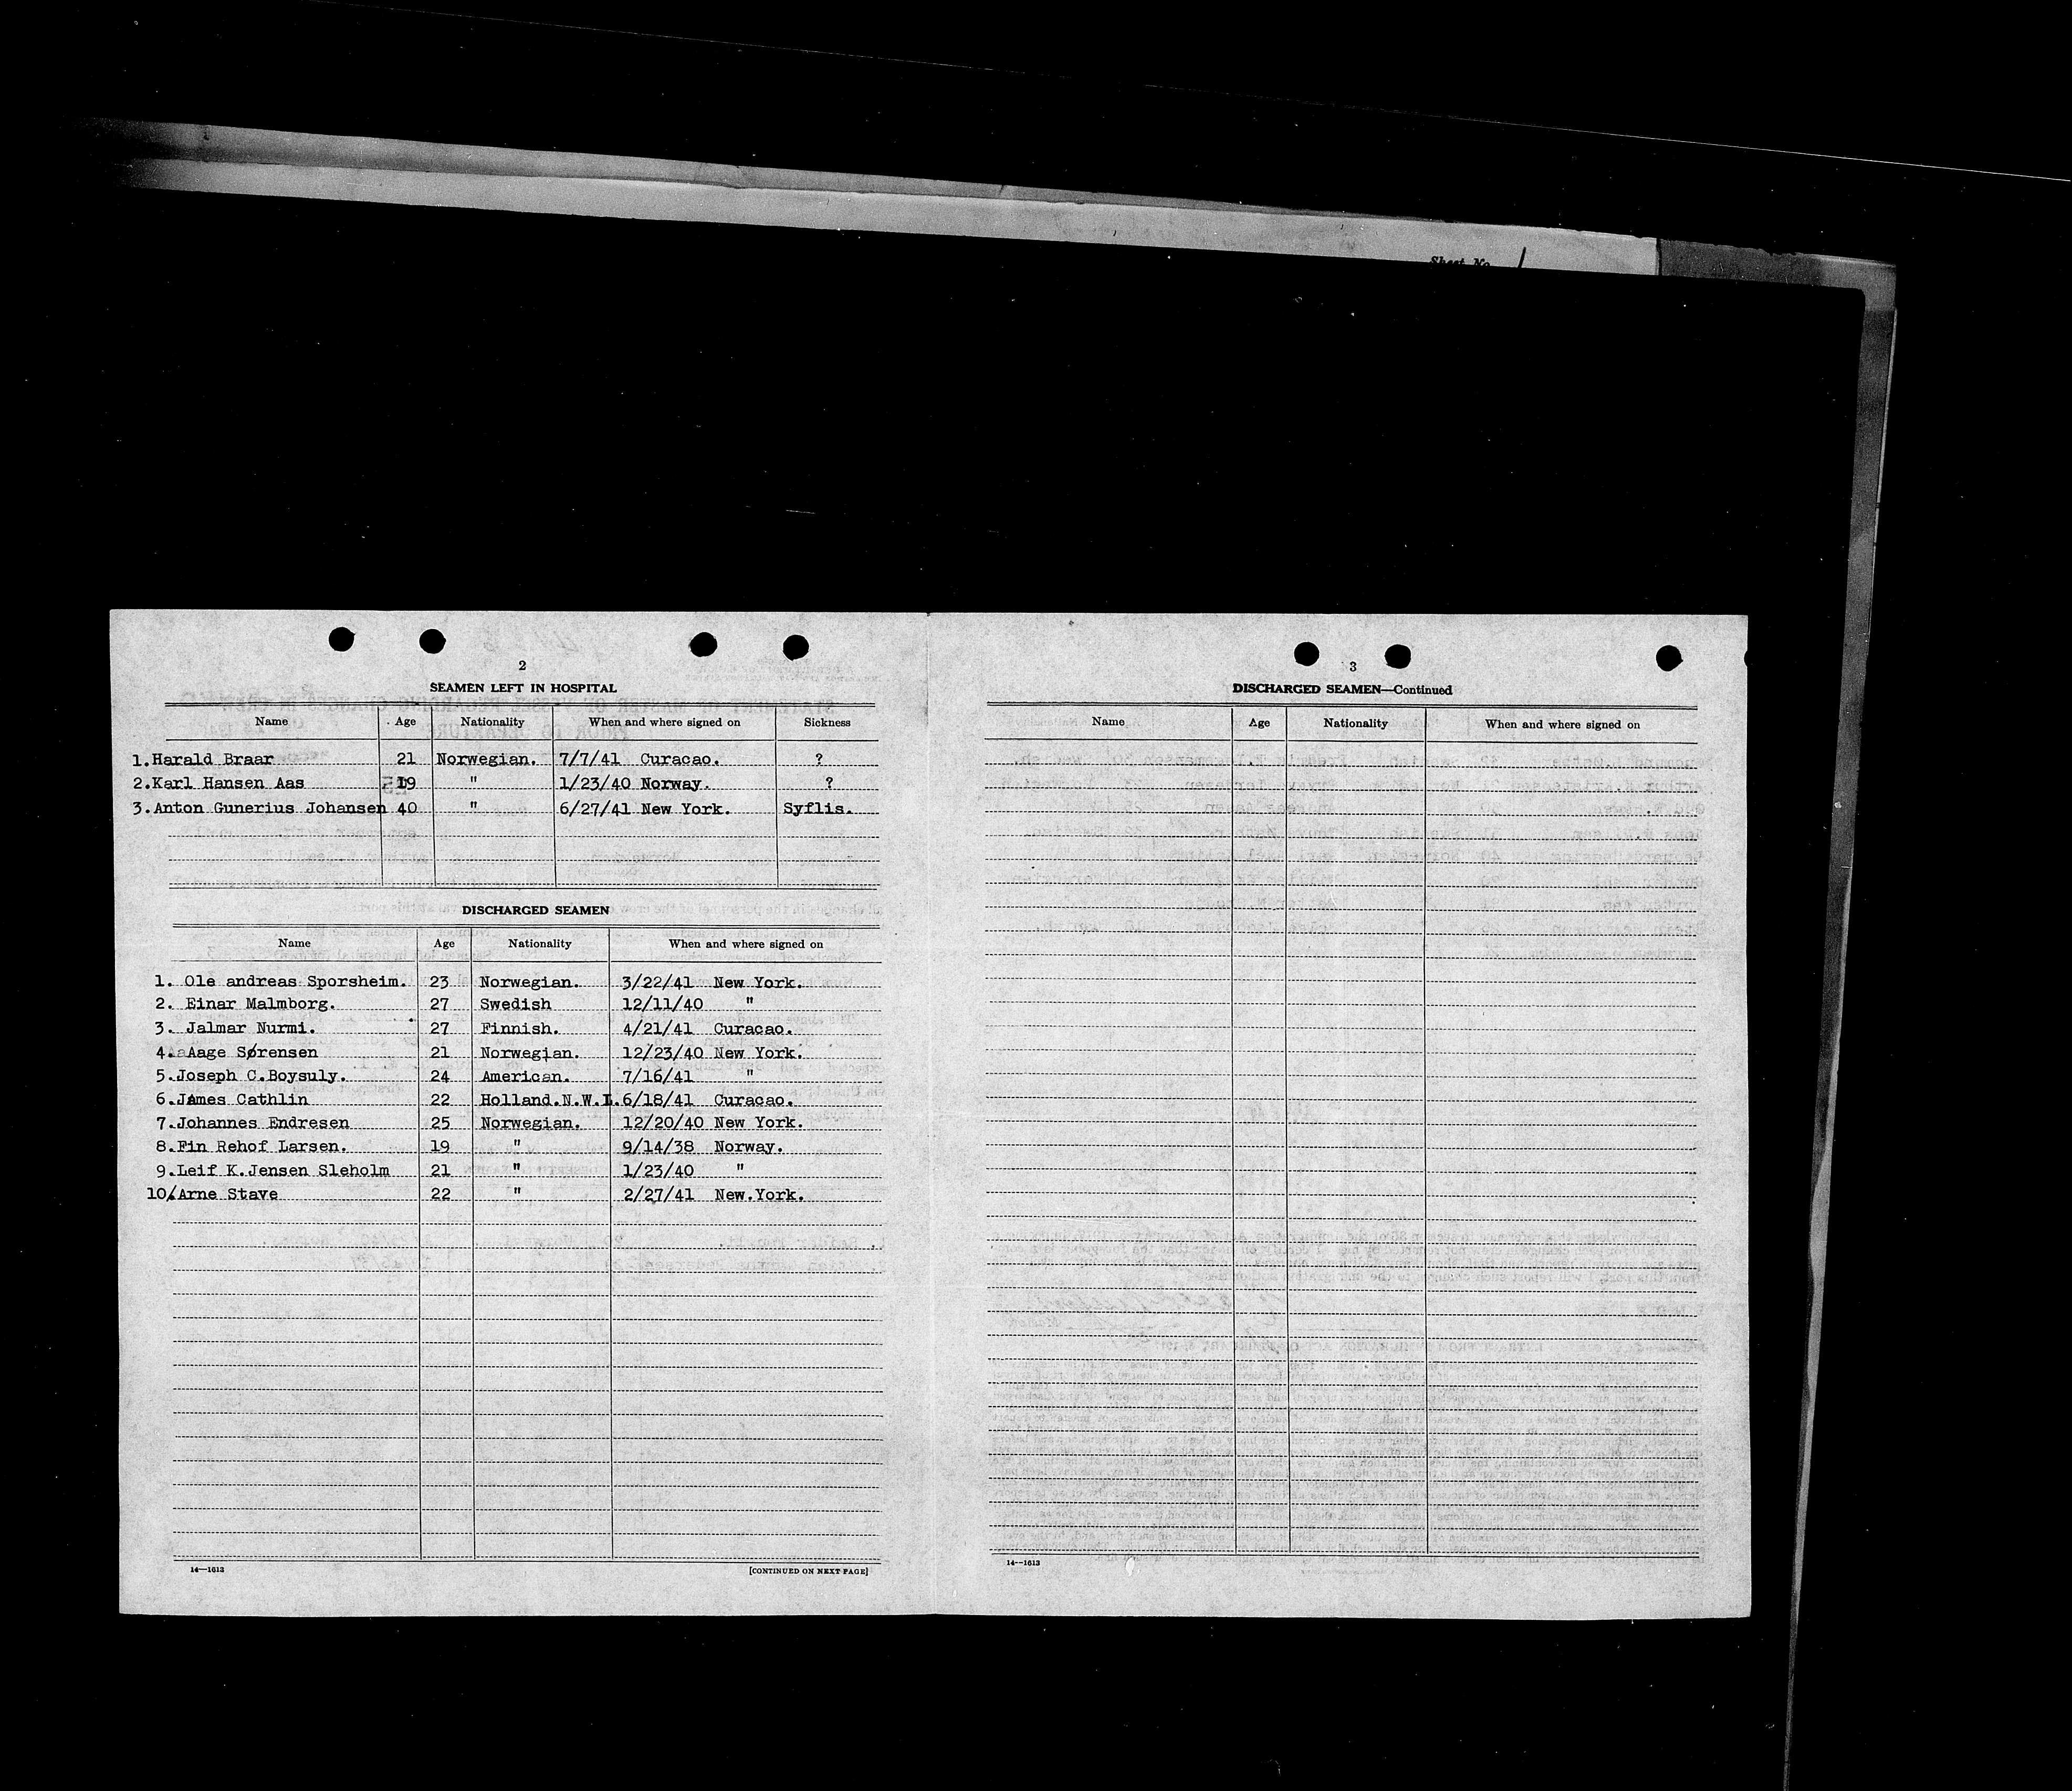 Sheet No. 1
2
SEAMEN LEFT IN HOSPITAL
Name Age Nationality When and where signed on Sickness
1. Harald Braar 21 Norwegian. 7/7/41 Curacao. ?
2. Karl Hansen Aas 19 " 1/23/40 Norway. ?
3. Anton Gunerius Johansen 40 " 6/27/41 New York. Syflis.
DISCHARGED SEAMEN
Name Age Nationality When and where signed on
1. Ole andreas Sporsheim. 23 Norwegian. 3/22/41 New York.
2. Einar Malmborg. 27 Swedish 12/11/40 "
3. Jalmar Nurmi. 27 Finnish. 4/21/41 Curacao.
4. Aage Sørensen 21 Norwegian. 12/23/40 New York.
5. Joseph C.Boysuly. 24 American. 7/16/41 "
6. James Cathlin 22 Holland.N.W.I. 6/18/41 Curacao.
7. Johannes Endresen 25 Norwegian. 12/20/40 New York.
8. Fin Rehof Larsen. 19 " 9/14/38 Norway.
9. Leif K.Jensen Sleholm 21 " 1/23/40 "
10. Arne Stave 22 " 2/27/41 New.York.
14—1613 [CONTINUED ON NEXT PAGE]
3
DISCHARGED SEAMEN—Continued
Name Age Nationality When and where signed on
14—1613